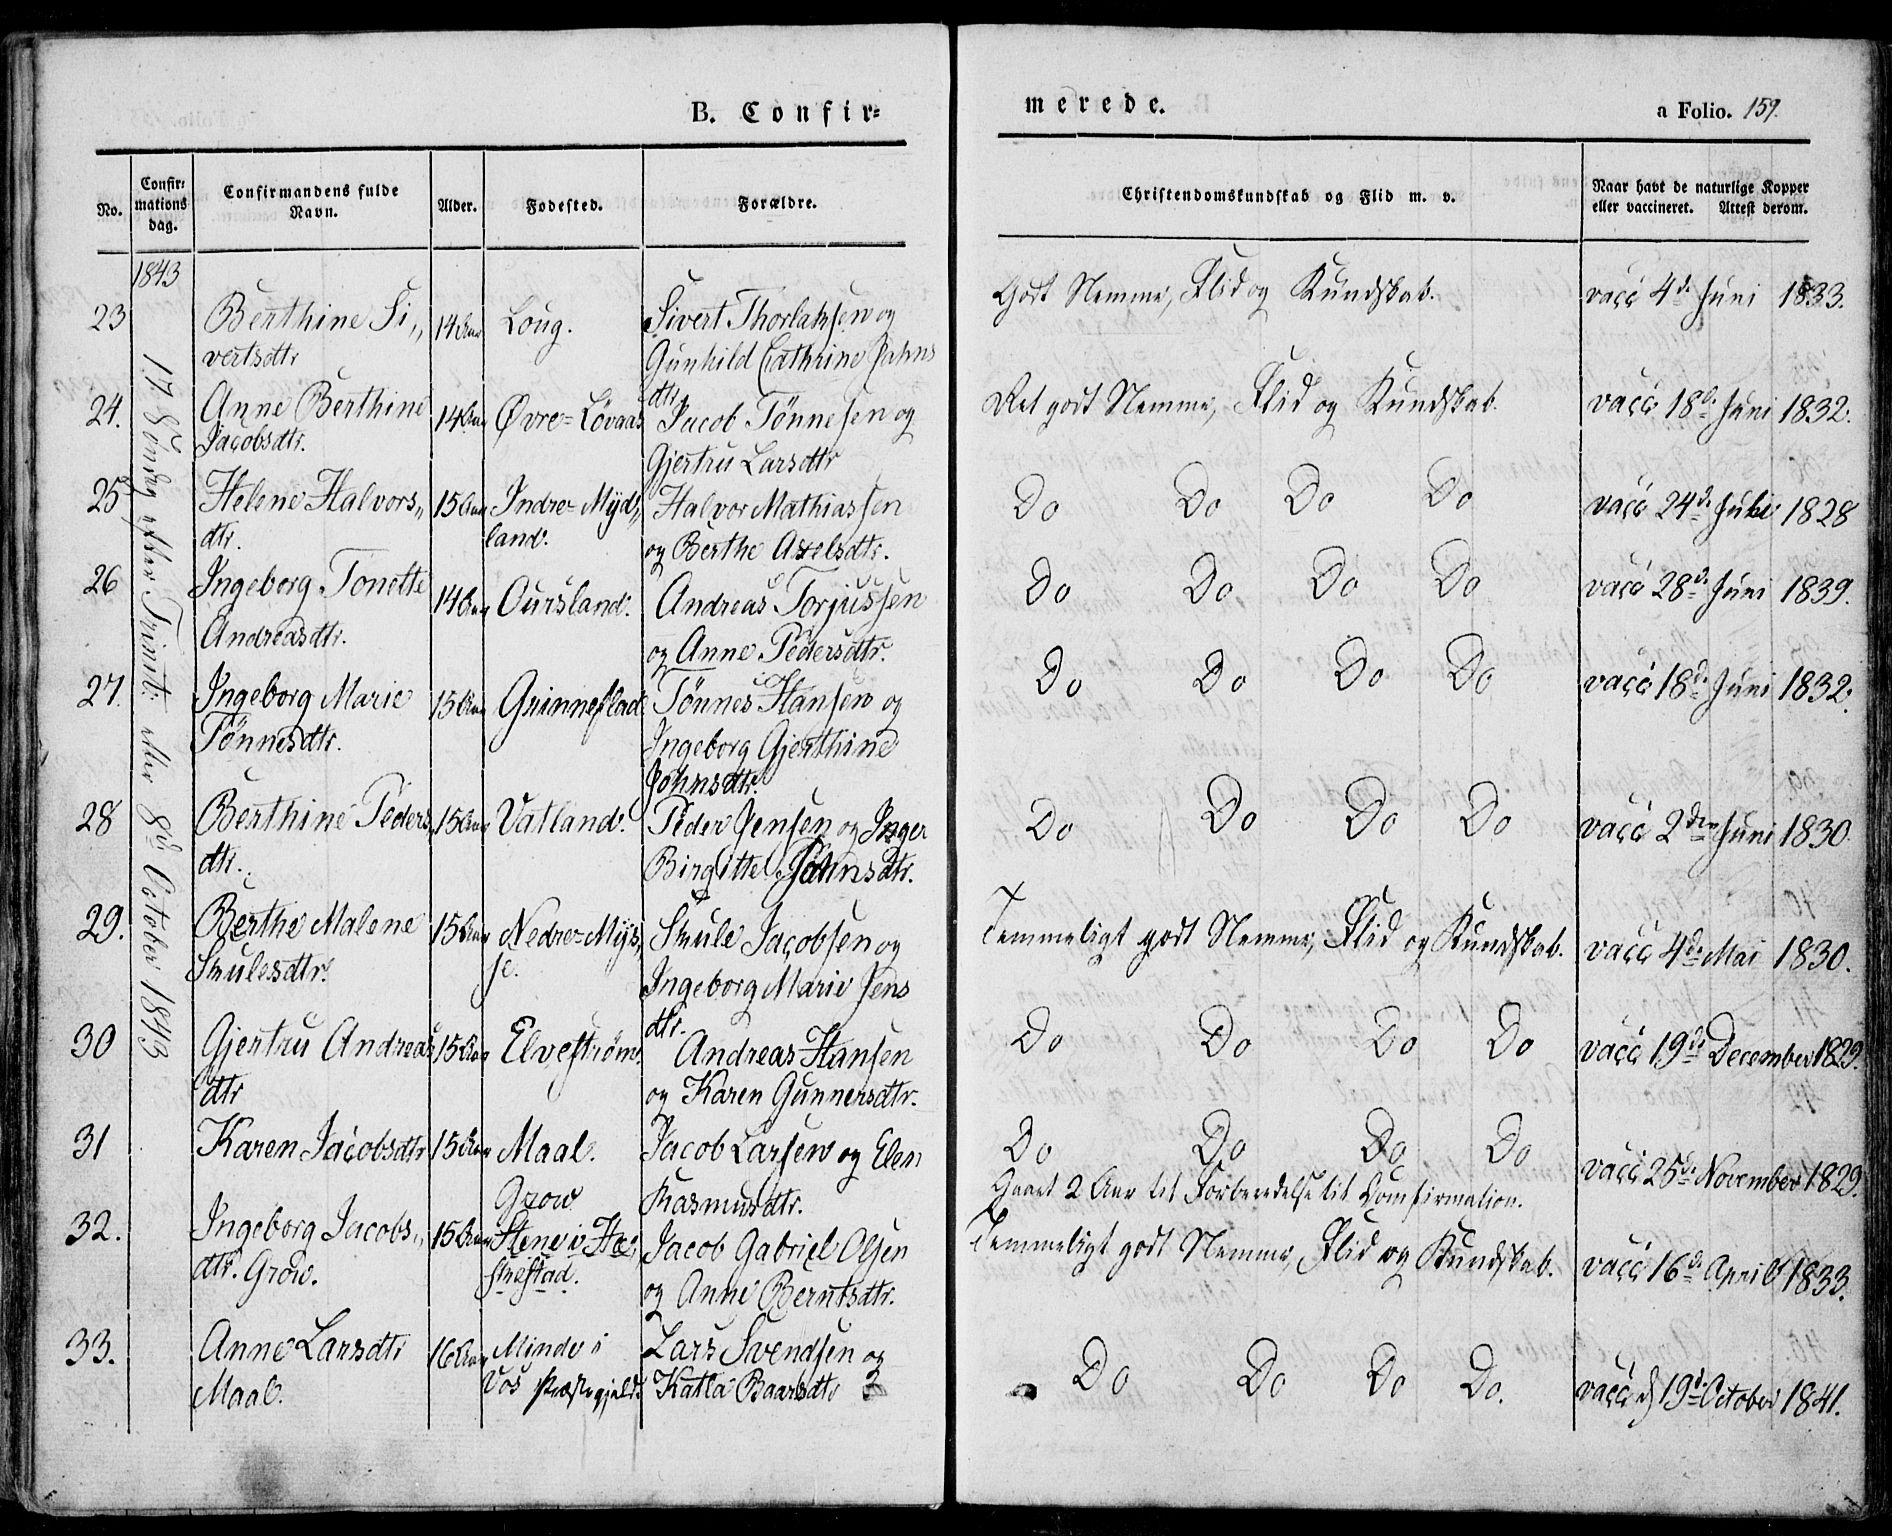 B. Confir=
merede.
a Folio. 159.
No.
Confir=
mations
dag.
Confirmandens fulde
Navn.
Alder.
Fødested.
Forældre.
Christendomskundskab og Flid m. v.
Naar havt de naturlige Kopper
eller vaccineret. Attest derom.
1843
17 Søndag efter Trinit: eller 8de October 1843
23 Berthine Si„ 14 Aar Loug. Sivert Thorlaksen og Godt Nemme, Flid og Kundskab. vacc 4de Juni 1833.
vertsdtr Gunhild Cathrine Jahns
dtr
24. Anne Berthine 14 Aar Øvre=Løvaas Jacob Tønnesen og Ret godt Nemme, Flid og Kundskab. vacc 18de Juni 1832.
Jacobsdtr. Gjertru Larsdtr
25 Helene Halvors„ 15 Aar Indre=Myd„ Halvor Mathiassen Do Do Do Do vacc 24de Juli 1828
dtr. land. og Berthe Axelsdtr.
26 Ingeborg Tonette 14 Aar Oursland. Andreas Torjussen Do Do Do Do vacc 28de Juni 1839.
Andreasdtr. og Anne Pedersdtr.
27. Ingeborg Marie 15 Aar Grinneflad Tønnes Hansen og Do Do Do Do vacc 18de Juni 1832.
Tønnesdtr. Ingeborg Gjerthine
Johnsdtr.
28 Berthine Peders 15 Aar Vatland. Peder Jensen og Inger Do Do Do Do vacc 2den Juni 1830.
dtr. Birgitte Johnsdtr.
29. Berthe Malene 15 Aar Nedre=Mys„ Skule Jacobsen og Temmeligt godt Nemme, Flid og Kundskab. vacc 4de Mai 1830.
Skulesdtr. se. Ingeborg Marie Jens
dtr.
30 Gjertru Andreas 15 Aar Elvestrøm. Andreas Hansen Do Do Do Do vacc 19de December 1829.
dtr og Karen Gunnersdtr.
31 Karen Jacobsdtr 15 Aar Maal. Jacob Larsen og Elen Do Do Do Do vacc 25de November 1829.
Grow Rasmusdtr. Gaaet 2 Aar til Forberedelse til Confirmation.
32. Ingeborg Jacobs„ 15 Aar Stene i He„ Jacob Gabriel Olsen Temmeligt godt Nemme, Flid og Kundskab. vacc 16de April 1833.
dtr. Grow. skestad. og Anne Berntsdtr.
33. Anne Larsdtr 16 Aar Minde i Lars Svendsen og Do Do Do Do. vacc d 19de October 1841.
Maal. Vos Præstegjeld. Katla Baarsdtr